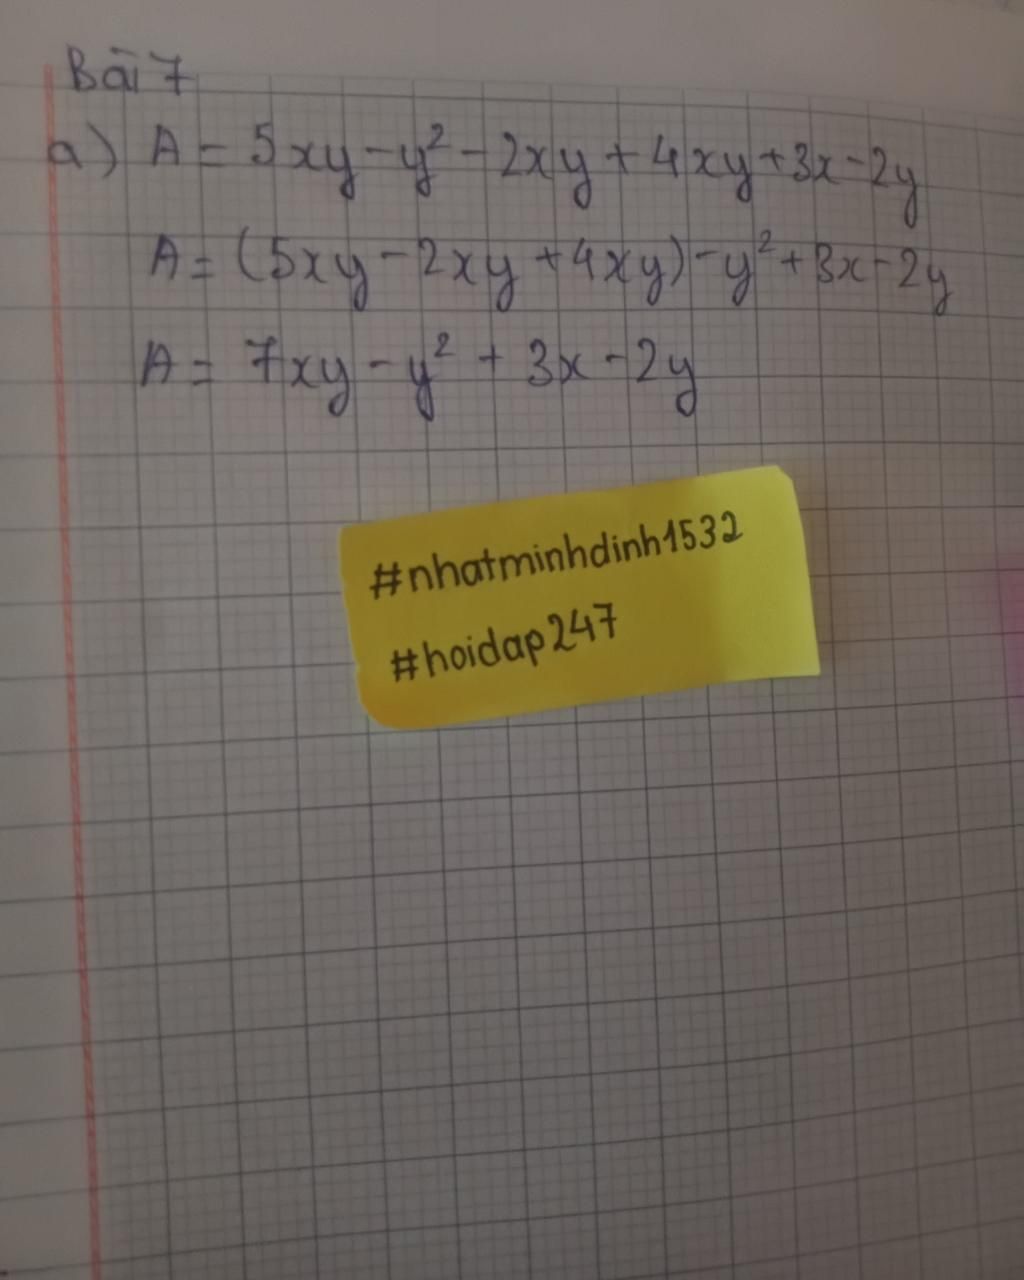 Bài 7
a) A = 5xy - y² - 2xy + 4xy + 3x - 2y
A = (5xy - 2xy + 4xy) - y² + 3x - 2y
A = 7xy - y² + 3x - 2y
#nhatminhdinh1532
#hoidap247